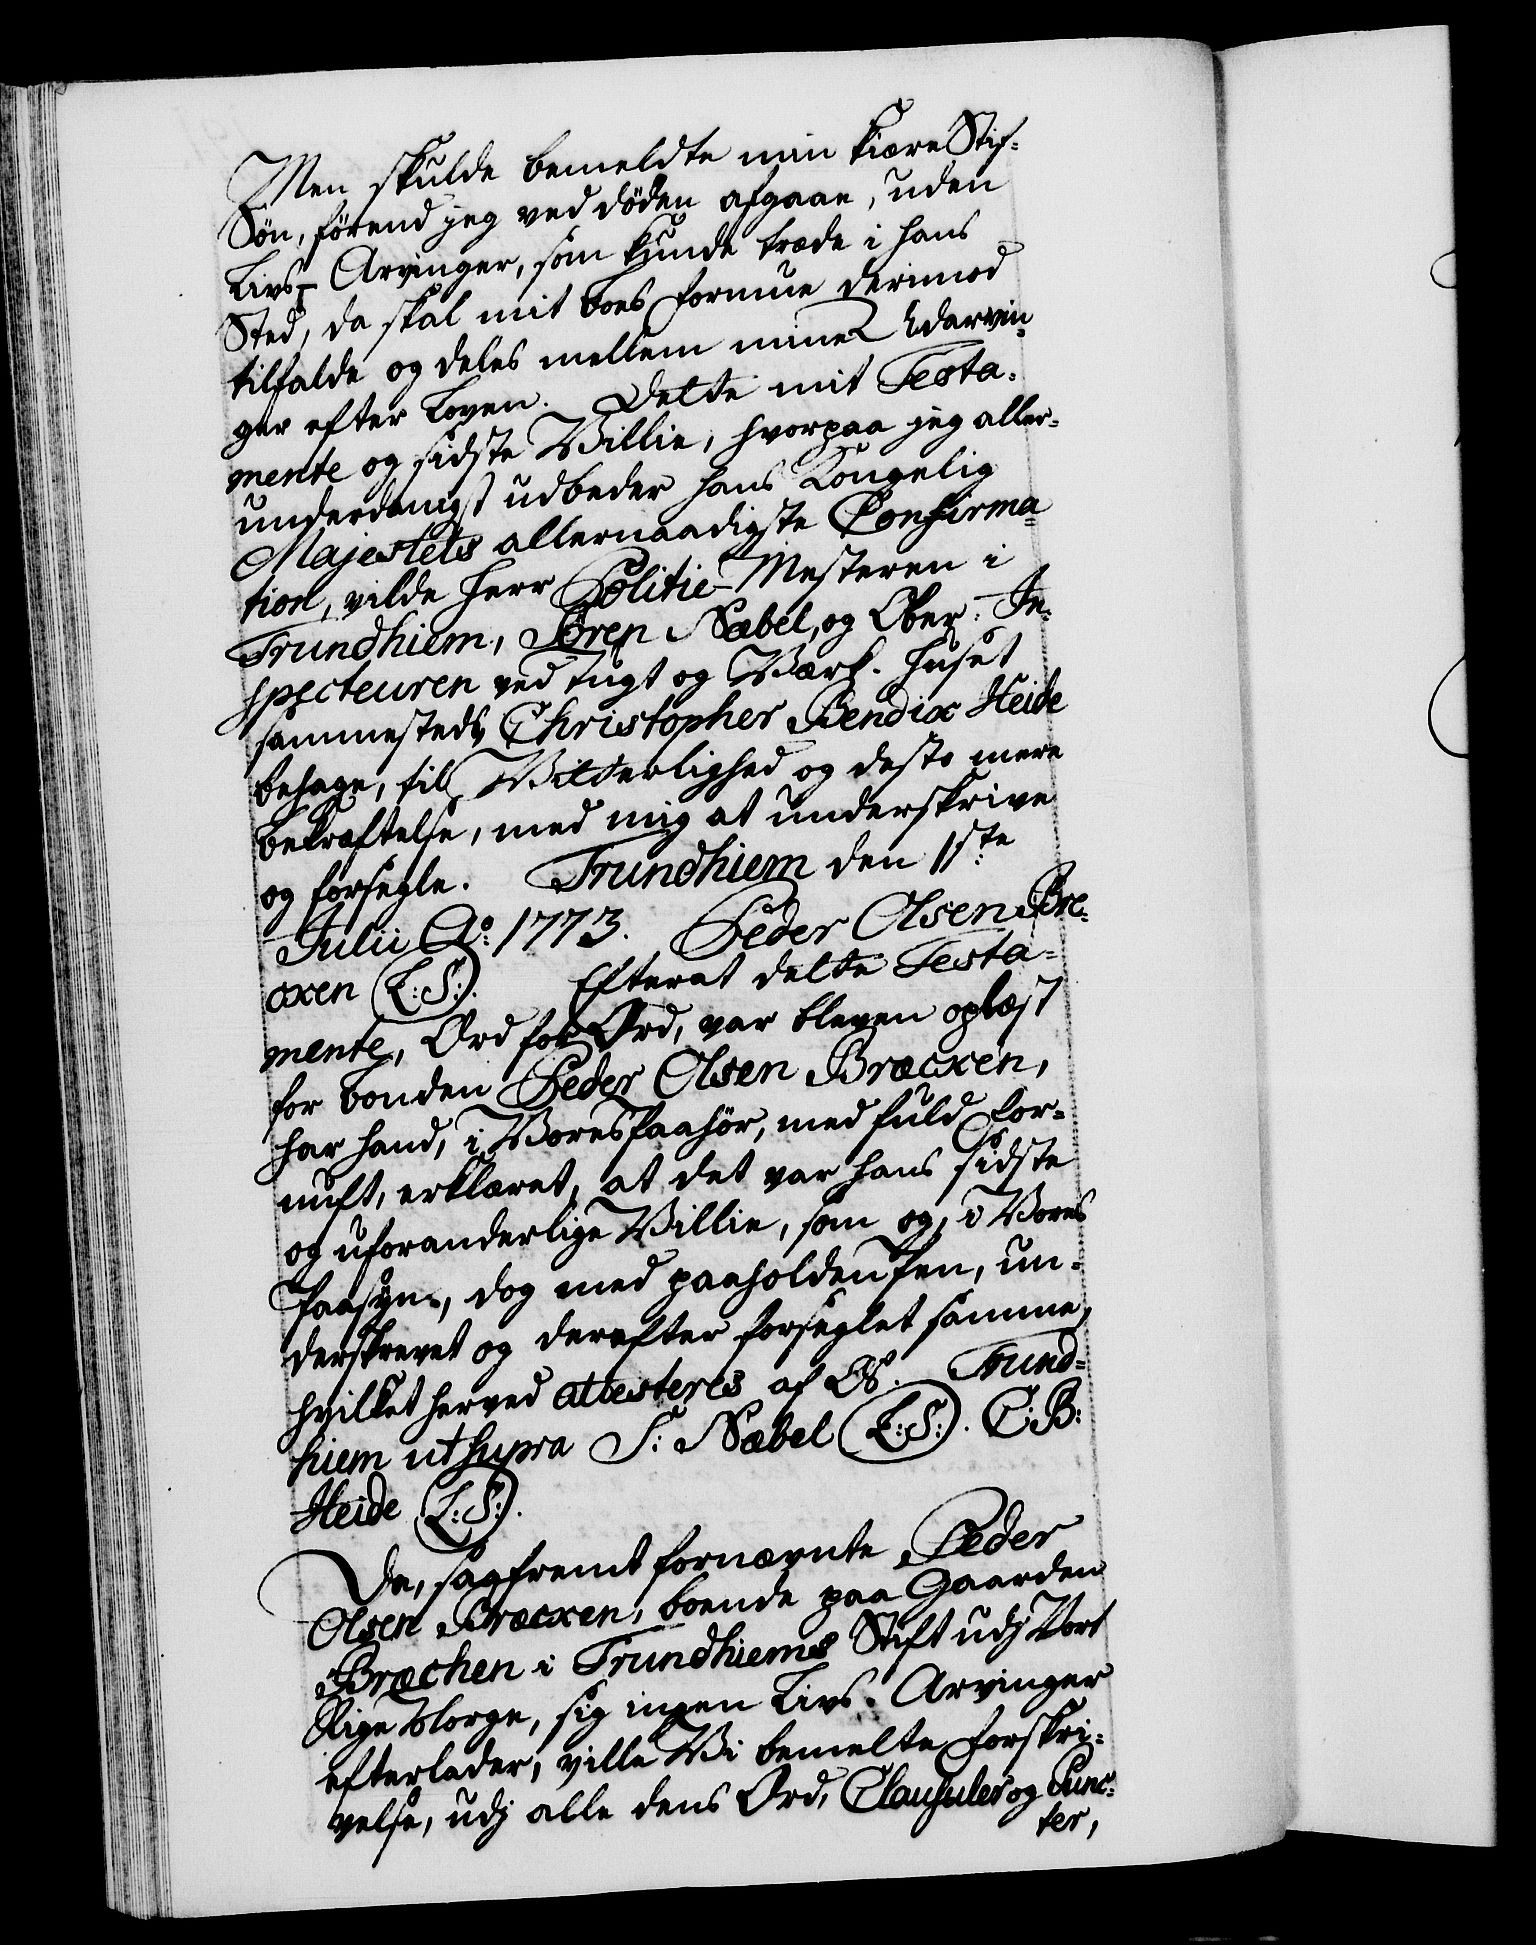 Men skulde bemeldte min kiære Stif-
Søn, førend jeg ved døden afgaae, uden
Livs-Arvinger, som kunde træde i hans
Sted, da skal mit Boes formue derimod
tilfalde og deles mellem mine Udarvin-
ger efter Loven. Dette mit Testa-
mente og sidste Villie, hvorpaa jeg aller-
underdanigst udbeder hans Kongelig
Majestets allernaadigste Confirma-
tion, vilde Herr Politie-Mesteren i
Trundhiem, Sören Næbel, og Ober-In-
specteuren ved Tugt og Værk-Huset
sammesteds Christopher Bendix Heide
behage, til Vitterlighed og desto mere
bekræftelse, med mig at underskrive
og forsegle. Trundhiem den 11ste
Julii Ao: 1773. Peder Olsen Bræ-
cxen (L:S:). Efterat dette Testa-
mente, Ord for Ord, var bleven oplæst
for bonden Peder Olsen Bræcxen,
har hand, i Vores Paahør, med fuld For-
nuft, erklæret, at det var hans sidste
og uforanderlige Villie, som og, i Vores
Paasyn, dog med paaholden Pen, un-
derskrevet og derefter forseglet samme,
hvilket herved attesteres af Os. Trund-
hiem ut supra S: Næbel (L:S:). C:B:
Heide (L:S:).
Da, saafremt fornævnte Peder
Olsen Bræcxen, boende paa Gaarden
Bræchen i Trundhiems Stift udj Vort
Rige Norge, sig ingen Livs-Arvinger
efterlader, ville Vi bemelte forskri-
velse, udj alle dens Ord, Clausuler og Punc-
ter,